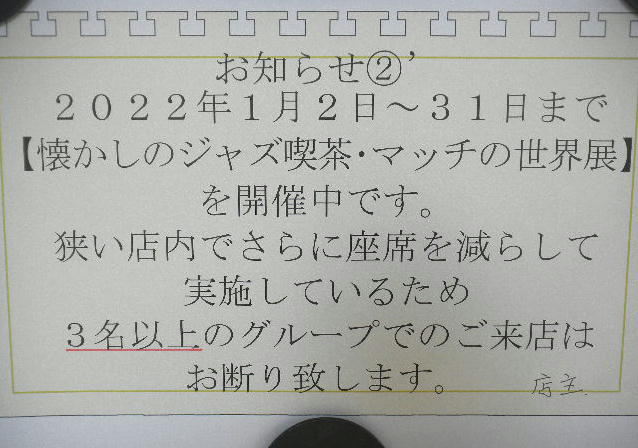 お知らせ②’
２０２２年１月２日～３１日まで
【懐かしのジャズ喫茶・マッチの世界展】
を開催中です。
狭い店内でさらに座席を減らして
実施しているため
３名以上のグループでのご来店は
お断り致します。
店主